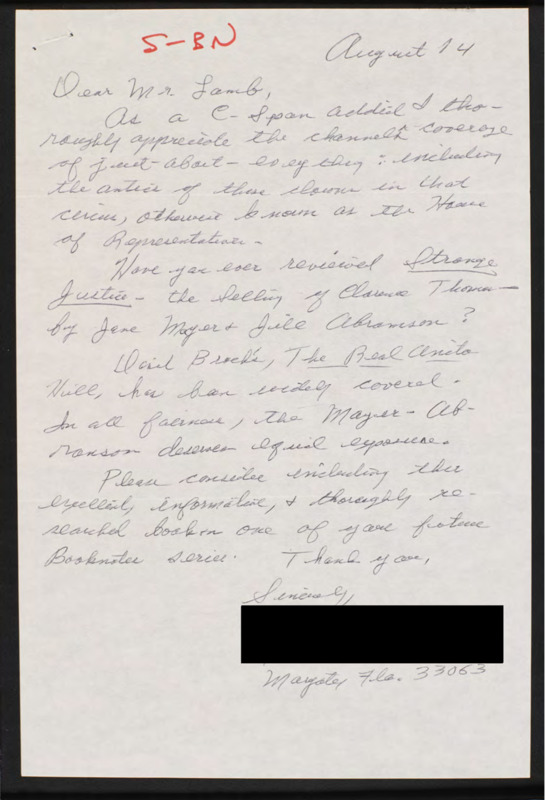 S-BN
August 14
Dear Mr. Lamb,
As a C-Span addict I tho-
roughly appreciate the channel's coverage
of just-about-everything: including
the antics of those clowns in that
circus, otherwise known as the House
of Representatives.
Have you ever reviewed Strange
Justice - the Selling of Clarence Thomas -
by Jane Mayer & Jill Abramson?
David Brock's, The Real Anita
Hill, has been widely covered.
In all fairness, the Mayer-Ab-
ramson deserves equal exposure.
Please consider including this
excellently informative, & thoroughly re-
searched book on one of your future
Booknotes series. Thank you,
Sincerely,
Margate, Fla. 33063